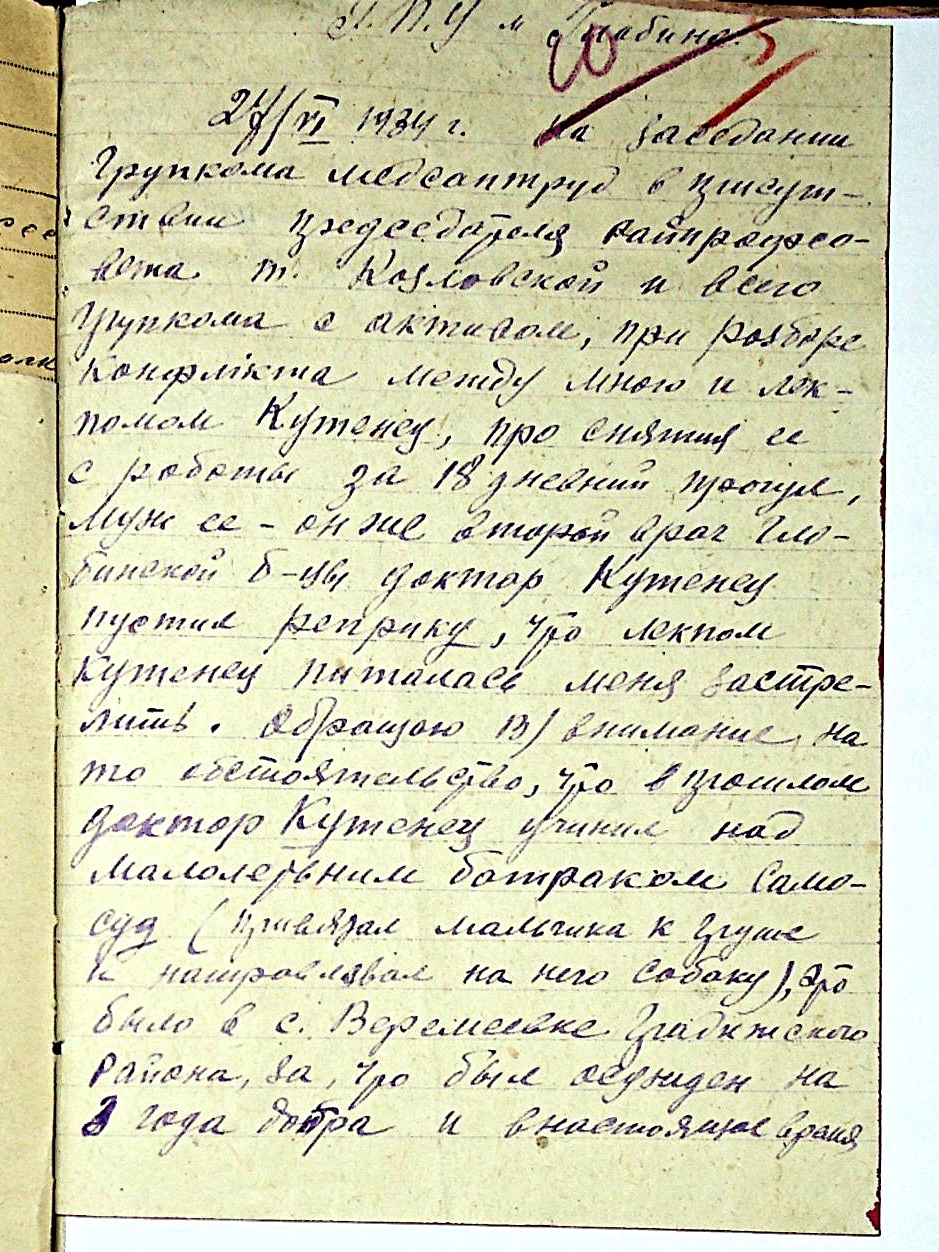 Г.П.У м Глобино.
20
27/VI 1934 г. На заседании
Групкома медсантруд в присут-
ствии председателя райпрофсо-
вета т. Козловской и всего
Групкома с активом, при розборе
Конфлікта между мною и лек-
помом Кутенец, про снятия ее
с работы за 18 дневний прогул,
Муж ее - он же второй врач Гло-
бинской б-цы доктор Кутенец
пустил реприку, что лекпом
Кутенец питалась меня застре-
лить. Обращаю В/ внимание на
то обстоятельство, что в прошлом
доктор Кутенец учинил над
малолетьним батраком Само-
суд (привязал мальчика к груше
и натровлявал на него собаку), это
было в с. Веремеевке Градижского
Района, за, что был осужден на
3 года допра и внастоящее время